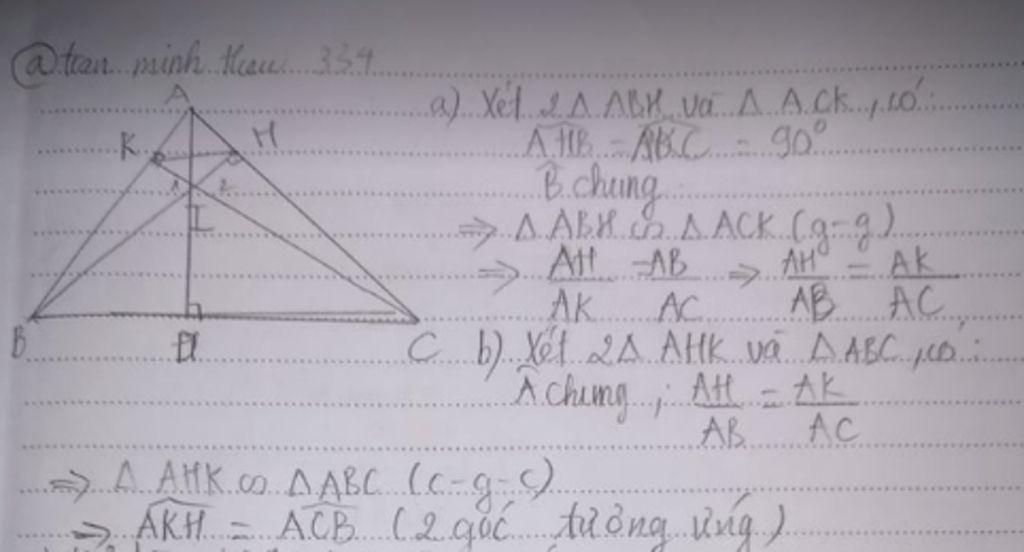 @tran minh thau 334
A
a) Xét 2Δ ABH và Δ ACK, có:
K H
AHB = AKC = 90°
1 2
B chung
I
⇒ Δ ABH ∽ Δ ACK (g-g)
⇒ AH/AK = AB/AC ⇒ AH/AB = AK/AC
B C
b) Xét 2Δ AHK và Δ ABC, có:
A chung ; AH/AB = AK/AC
⇒ Δ AHK ∽ Δ ABC (c-g-c)
⇒ AKH = ACB (2 góc tương ứng)